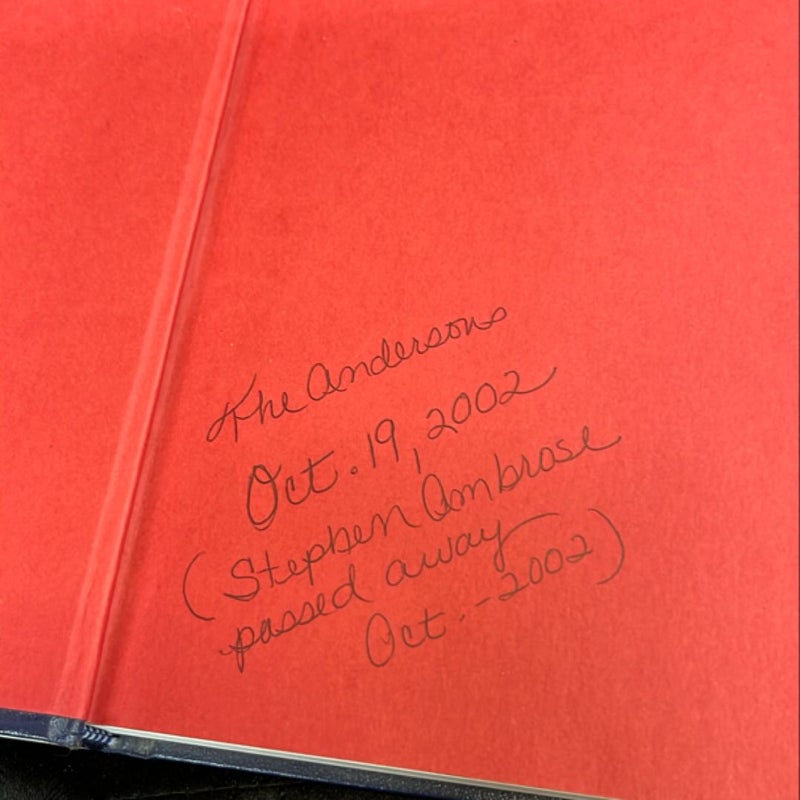 The Andersons
Oct. 19, 2002
(Stephen Ambrose
passed away
Oct. - 2002)